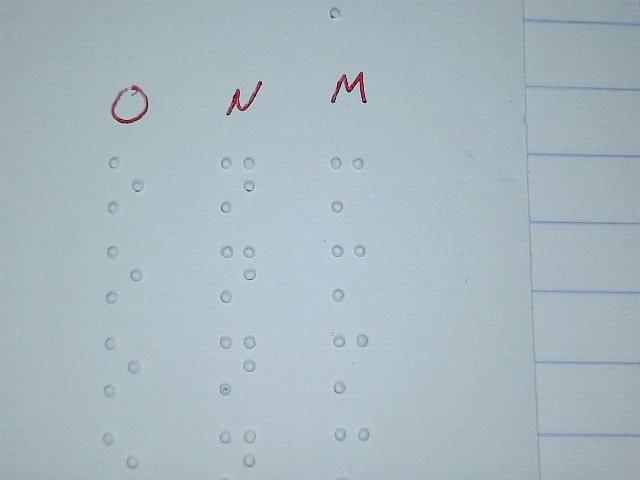 O N M
⠕ ⠝ ⠍
⠕ ⠝ ⠍
⠕ ⠝ ⠍